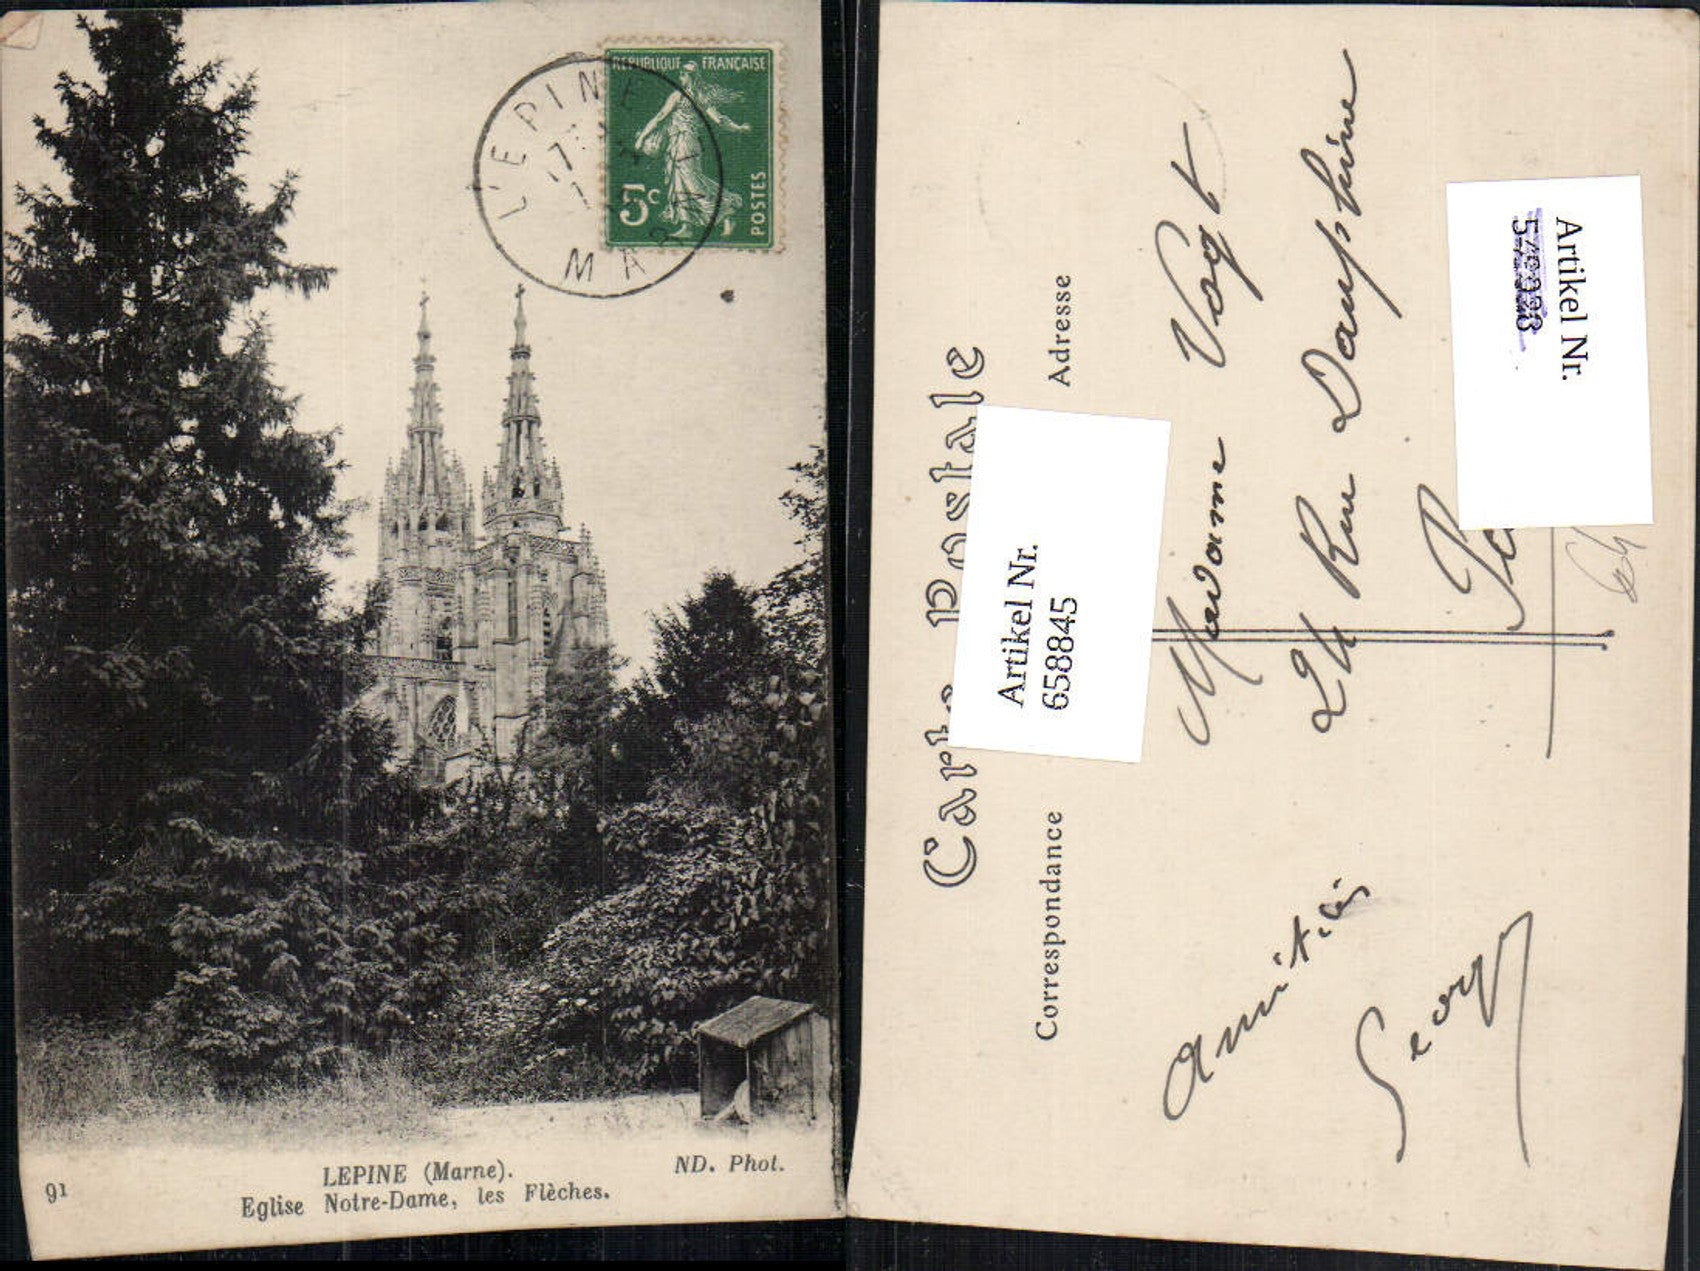 REPUBLIQUE FRANÇAISE
5c
POSTES
L'EPINE
MARNE
91
LEPINE (Marne).
ND. Phot.
Eglise Notre-Dame, les Flèches.
Carte Postale
Correspondance
Adresse
Artikel Nr.
658845
Artikel Nr.
Madame Vogt
24 Rue Dauphine
Amitiés
Georg